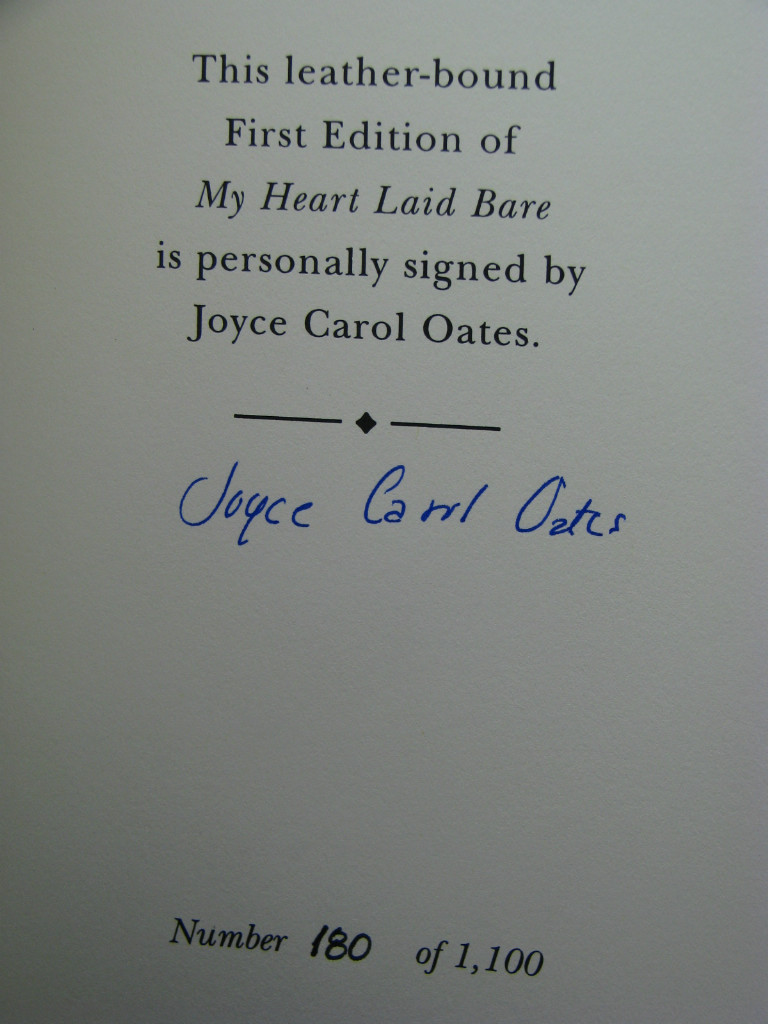 This leather-bound
First Edition of
My Heart Laid Bare
is personally signed by
Joyce Carol Oates.
Joyce Carol Oates
Number 180 of 1,100